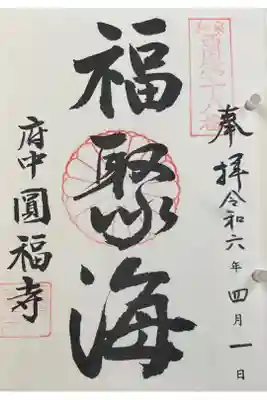 奉拝令和六年四月一日
福聚海
府中圓福寺